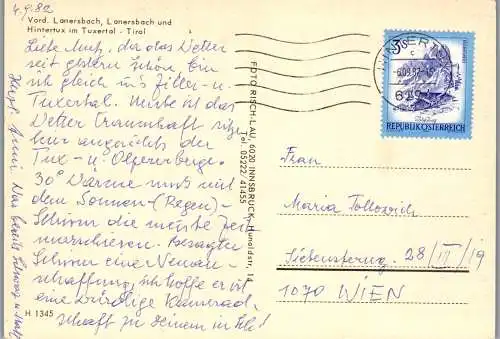 4.9.82
Vord. Lanersbach, Lanersbach und
Hintertux im Tuxertal - Tirol
Liebe Mutz, da das Wetter
seit gestern schön, bin
ich gleich ins Ziller- u.
Tuxertal. Heute ist das
Wetter traumhaft, sitze
hier angesichts der
Tux- u. Olpererberge.
30° Wärme muß mit
dem Sonnen-(Regen)-
Schirm die
marschieren. Besagter
Schirm einer Neuan-
schaffung, ich hoffe er ist
eine würdige Kamerad-
schaft zu deinem in lila!
Herzl. Anni
H 1345
FOTO RISCH-LAU, 6020 INNSBRUCK,
Tel. 05222/41455
3S
REPUBLIK ÖSTERREICH
Frau
Maria
Siebensterng. 28/III/19
1070 WIEN